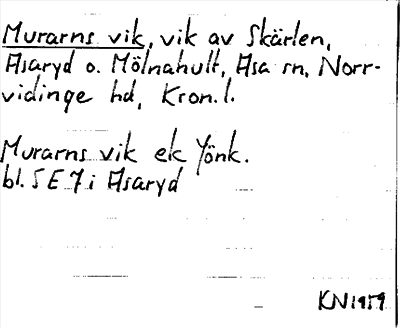 Murarns vik, vik av Skärlen,
Asaryd o. Mölnahult, Asa sn, Norr-
vidinge hd, Kron. l.
Murarns vik ek Jönk.
bl. 5 E 7 i Asaryd
KN 1959